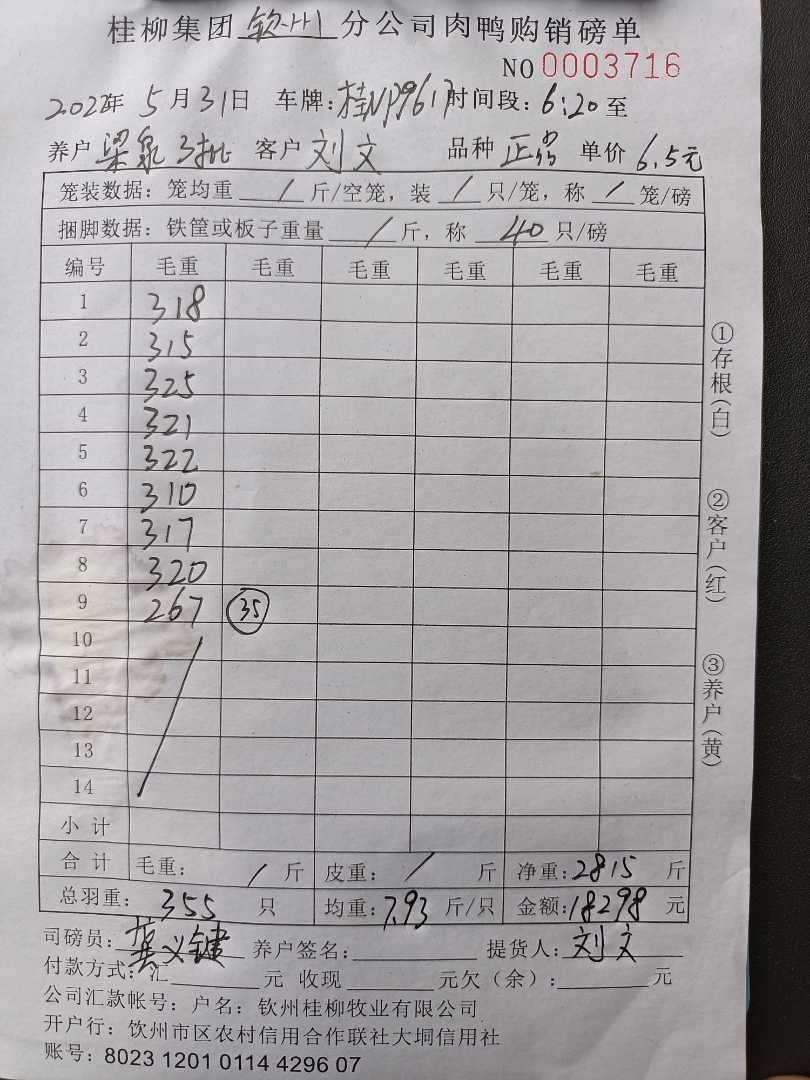 桂柳集团 钦州 分公司肉鸭购销磅单
NO 0003716
2022年 5月31日 车牌:桂NP9617 时间段:6:20至
养户 梁泉3批 客户 刘文 品种 正常 单价 6.5元
笼装数据:笼均重 / 斤/空笼,装 / 只/笼,称 / 笼/磅
捆脚数据:铁筐或板子重量 / 斤,称 40 只/磅
编号 毛重 毛重 毛重 毛重 毛重 毛重
1 318
2 315
3 325
4 321
5 322
6 310
7 317
8 320
9 267 35
10
11
12
13
14
小计
合计 毛重: / 斤 皮重: / 斤 净重:2815 斤
总羽重: 355 只 均重:7.93 斤/只 金额:18298 元
司磅员:龚义键 养户签名: 提货人:刘文
付款方式:汇 元 收现 元欠(余): 元
公司汇款帐号:户名:钦州桂柳牧业有限公司
开户行:饮州市区农村信用合作联社大垌信用社
账号:8023 1201 0114 4296 07
①存根(白)
②客户(红)
③养户(黄)